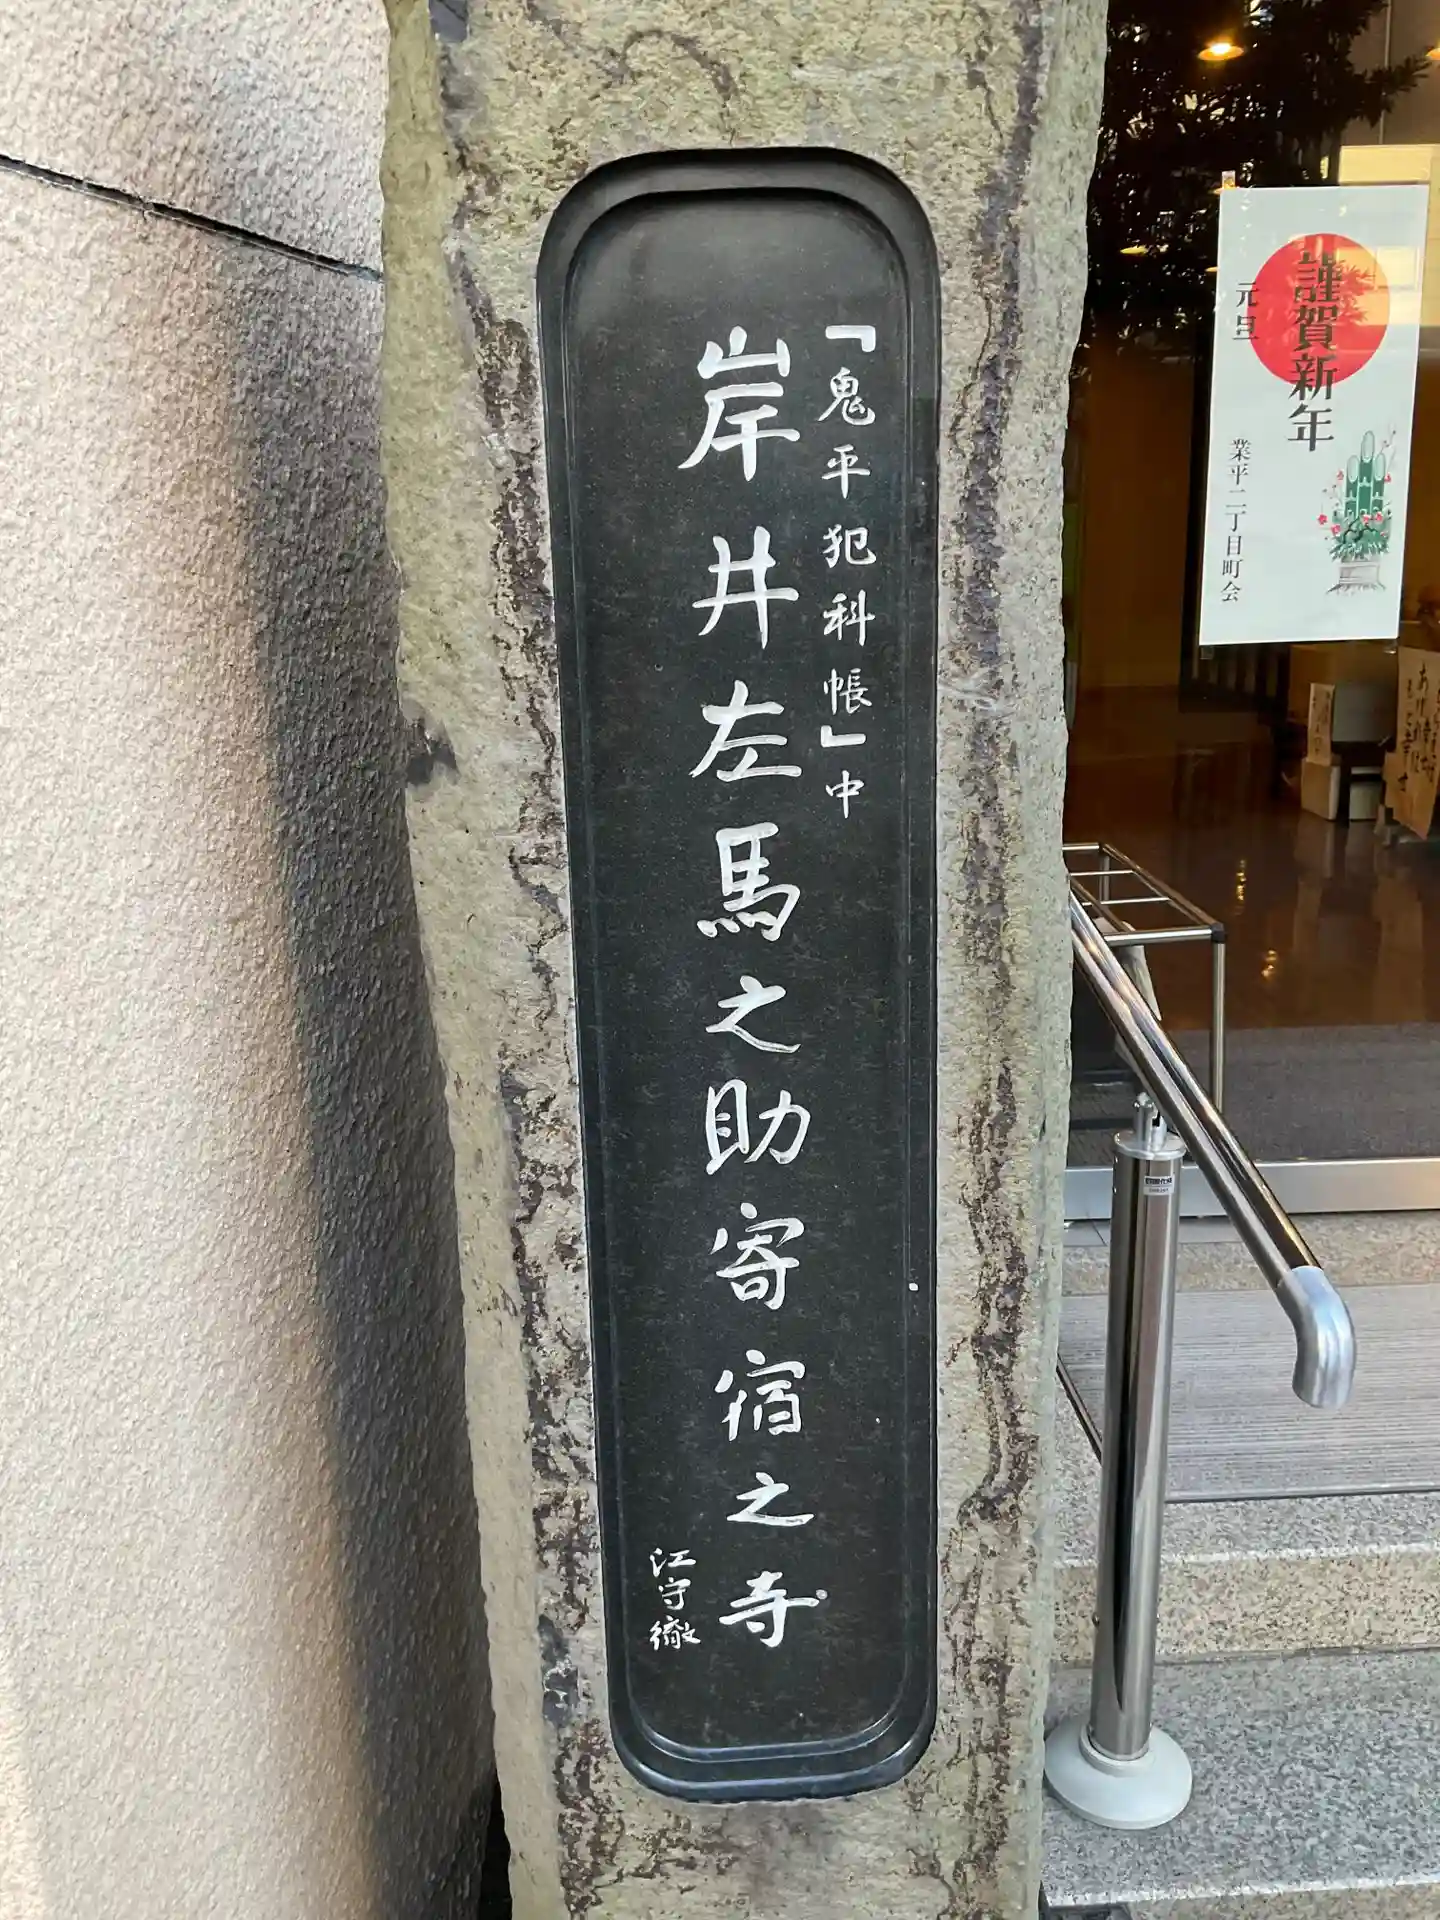 「鬼平犯科帳」中
岸井左馬之助寄宿之寺
江守徹
謹賀新年
元旦
業平二丁目町会